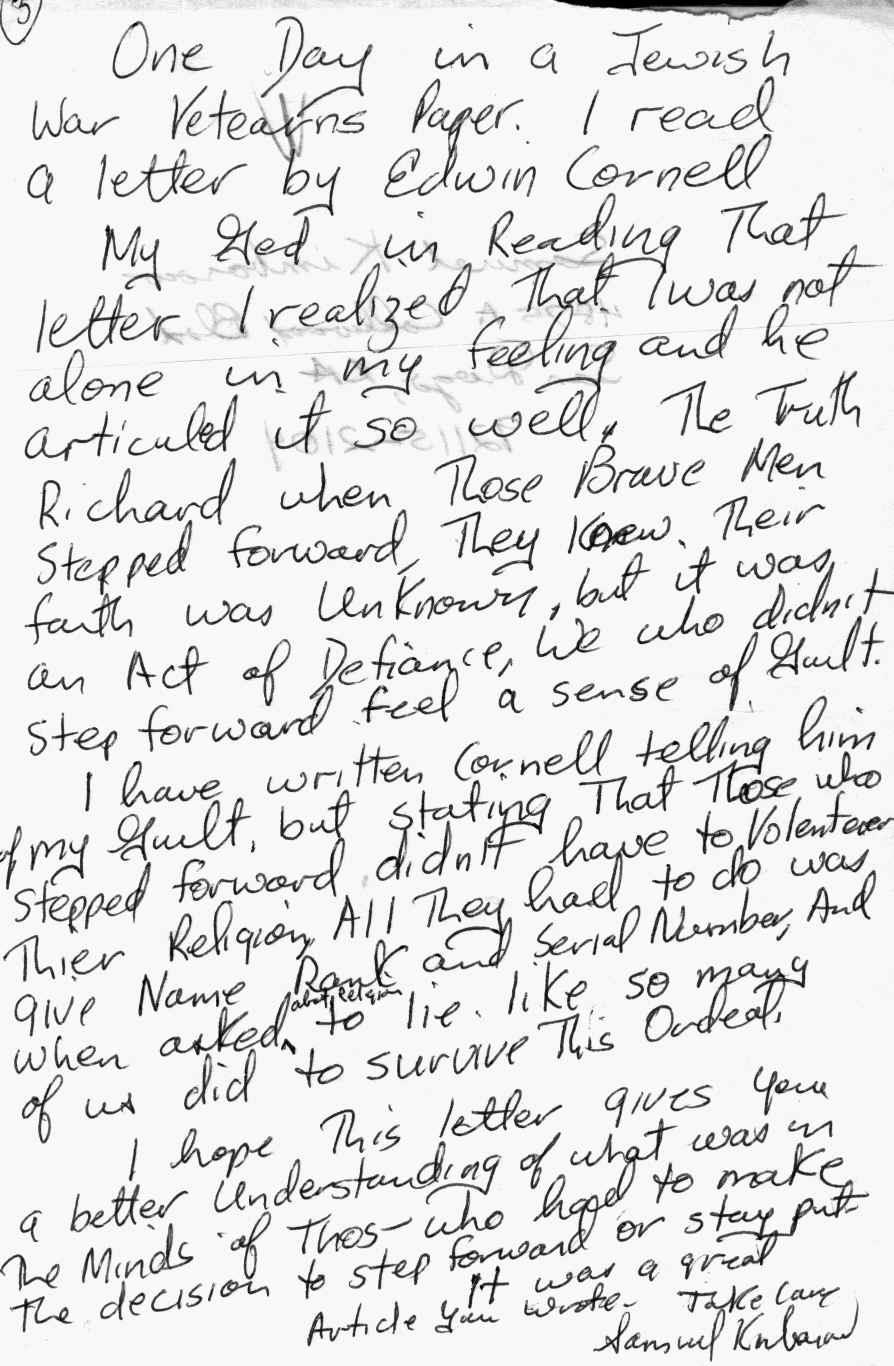 5
One Day in a Jewish
War Vetearns Paper. I read
a letter by Edwin Cornell
My God in Reading That
letter I realized That I was not
alone in my feeling and he
articuled it so well. The Truth
Richard when Those Brave Men
Stepped forward, They Knew Their
faith was UnKnown, but it was
an Act of Defiance, We who didn't
Step forward feel a sense of Guilt.
I have written Cornell telling him
of my Guilt, but stating That Those who
Stepped forward didn't have to Volenteer
Thier Religion, All They had to do was
give Name Rank and Serial Number, And
when asked about religion to lie. like so many
of us did to survive This Ordeal.
I hope This letter gives you
a better Understanding of what was in
The Minds of Thos who had to make
the decision to step forward or stay put
It was a great
Article you wrote. Take Care
Samuel